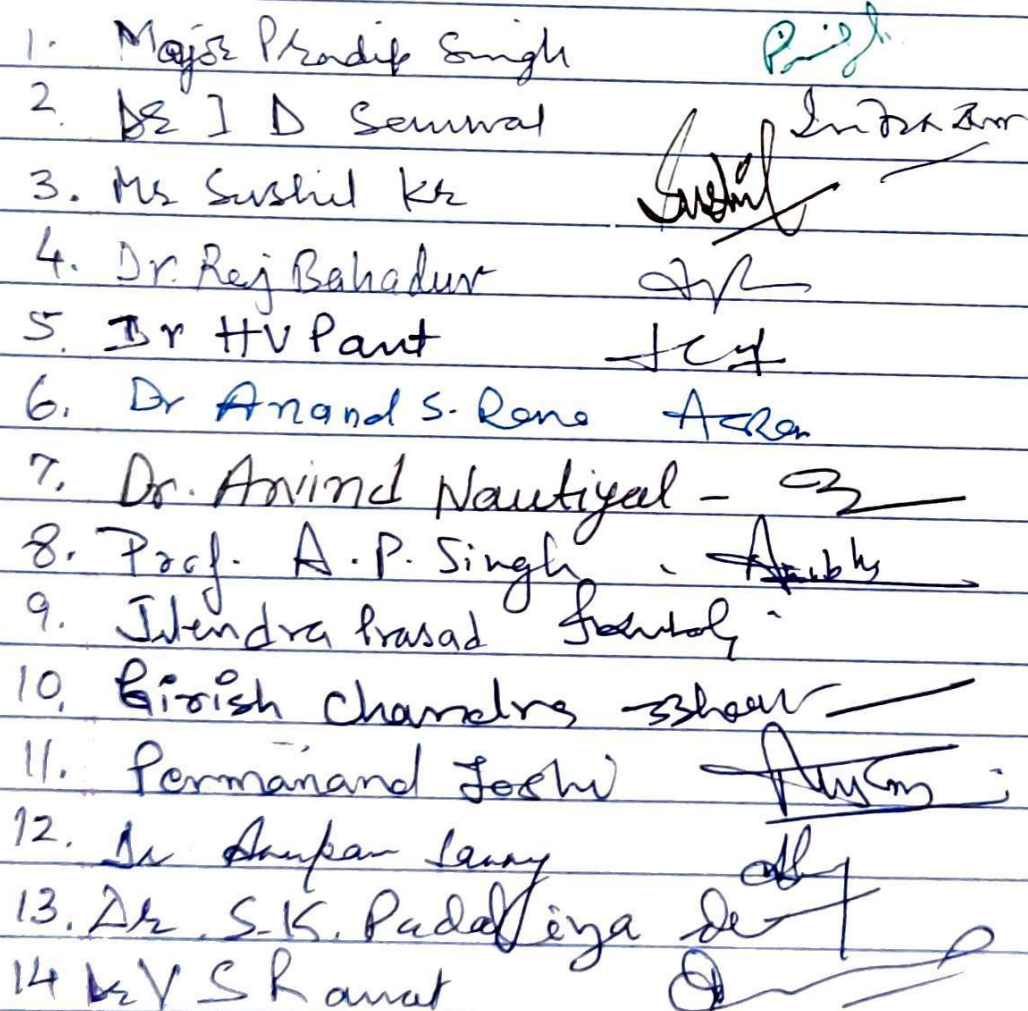 1. Major Pradip Singh
2. Dr I D Semwal
3. Mr Sushil Kr Sushil
4. Dr. Raj Bahadur
5. Dr HV Pant
6. Dr Anand S. Rana ASRan
7. Dr. Arvind Nautiyal -
8. Prof. A.P. Singh
9. Jitendra Prasad
10. Girish Chandra
11. Permanand Joshi
12. Dr Anupam
13. Dr. S.K. Padaliya
14 Dr V S Rawat